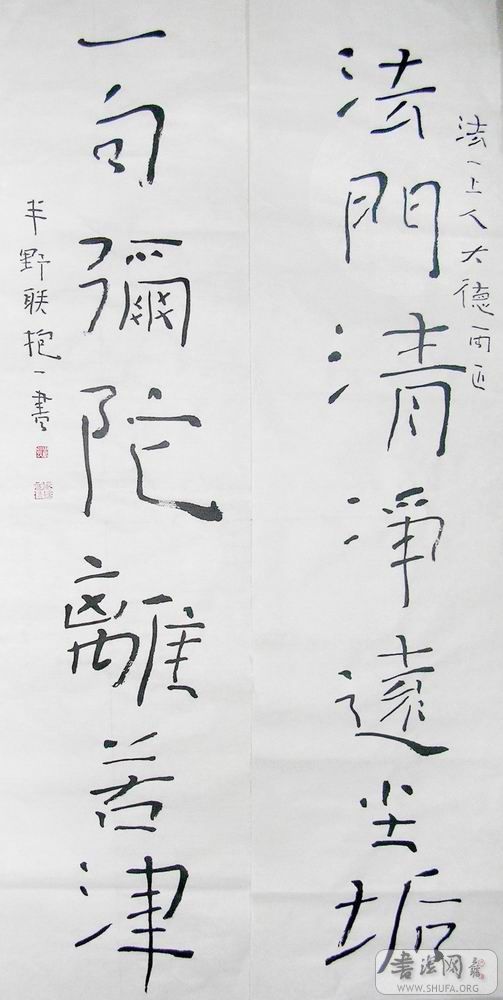 法一上人大德两正
法門清淨遠尘垢
一句彌陀離苦津
半野联抱一書
書法网
WWW.SHUFA.ORG